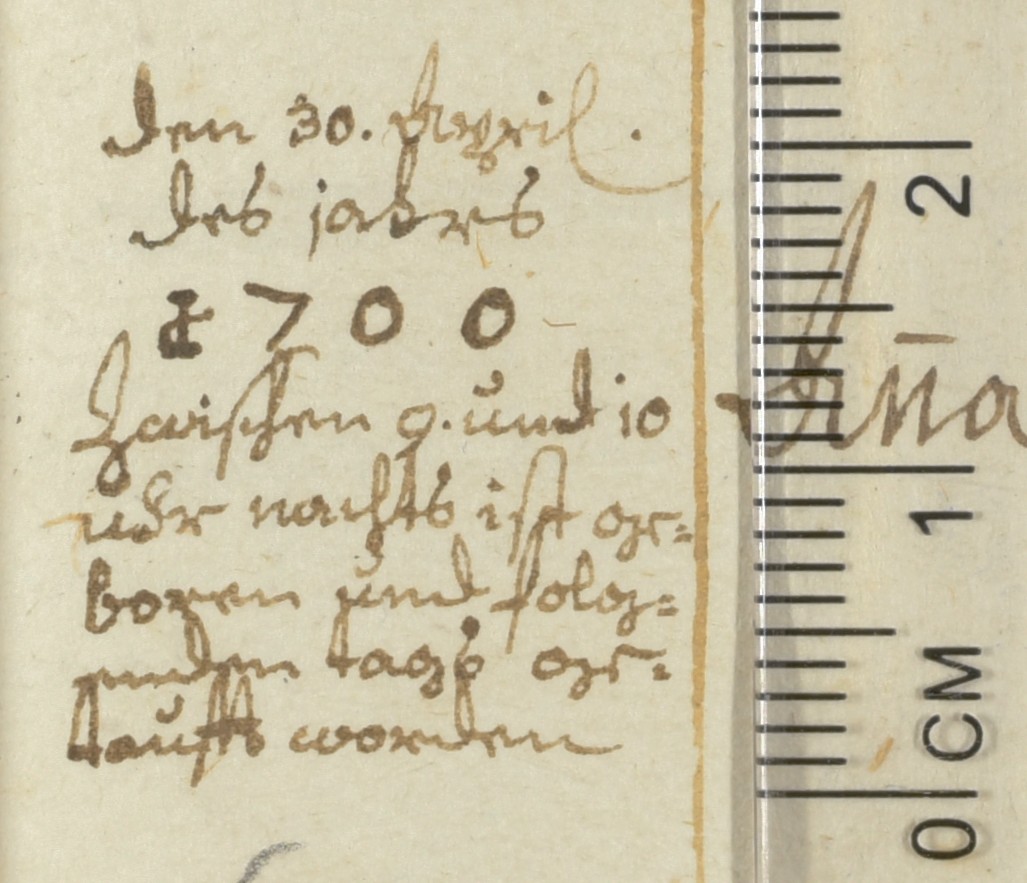 den 30. April.
des jahrs
1700
Zwischen 9. und 10
uhr nachts ist ge=
boren und folg=
enden tags ge=
taufft worden
Aña
2
1
0 CM